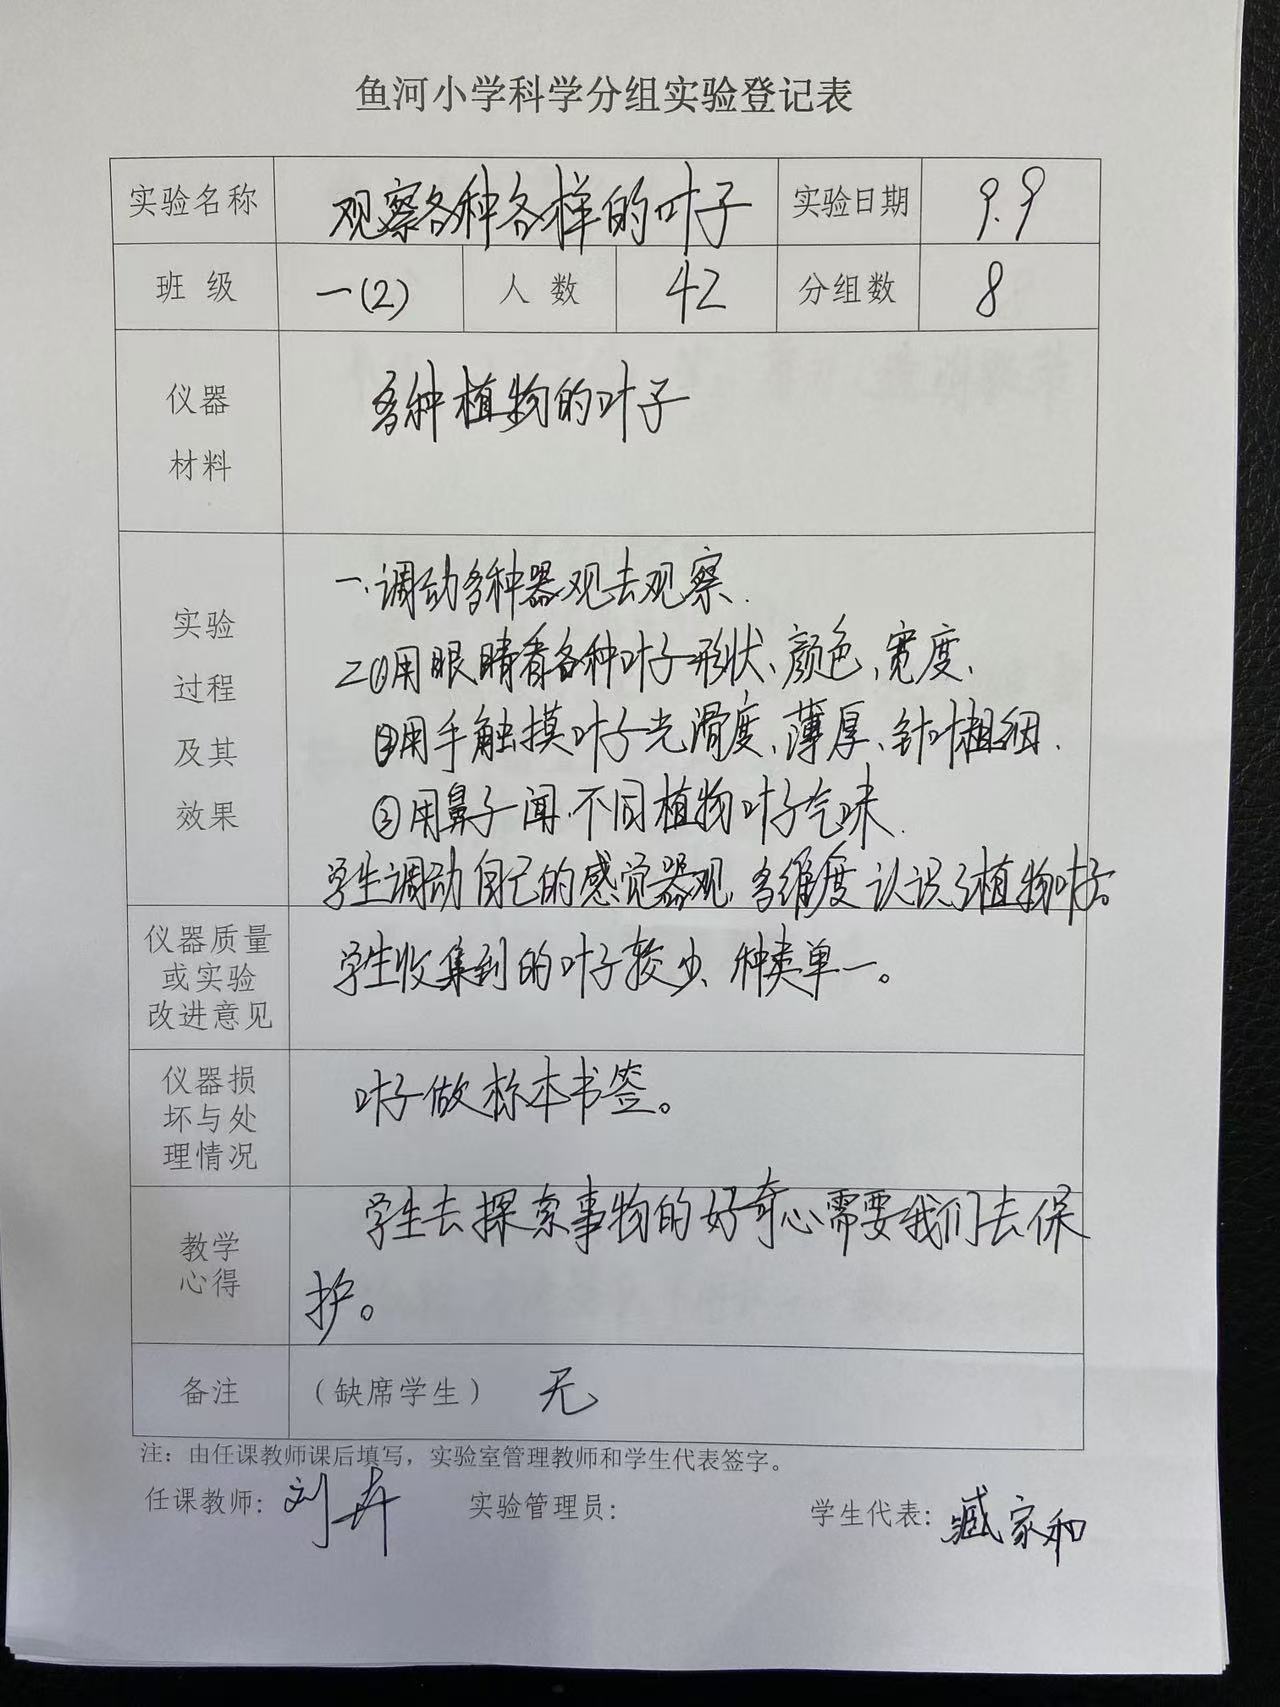 鱼河小学科学分组实验登记表
实验名称 观察各种各样的叶子 实验日期 9.9
班级 一(2) 人数 42 分组数 8
仪器 多种植物的叶子
材料
一.调动多种器观去观察.
实验
二①用眼睛看各种叶子形状、颜色、宽度、
过程
②用手触摸叶子光滑度、薄厚、针叶粗细.
及其
③用鼻子闻.不同植物叶子气味.
效果
学生调动自己的感觉器观,多维度认识了植物叶子。
仪器质量
或实验 学生收集到的叶子较少、种类单一。
改进意见
仪器损
坏与处 叶子做标本书签。
理情况
学生去探索事物的好奇心需要我们去保
教学
心得
护。
备注 （缺席学生） 无
注：由任课教师课后填写，实验室管理教师和学生代表签字。
任课教师: 刘卉 实验管理员: 学生代表: 臧家和